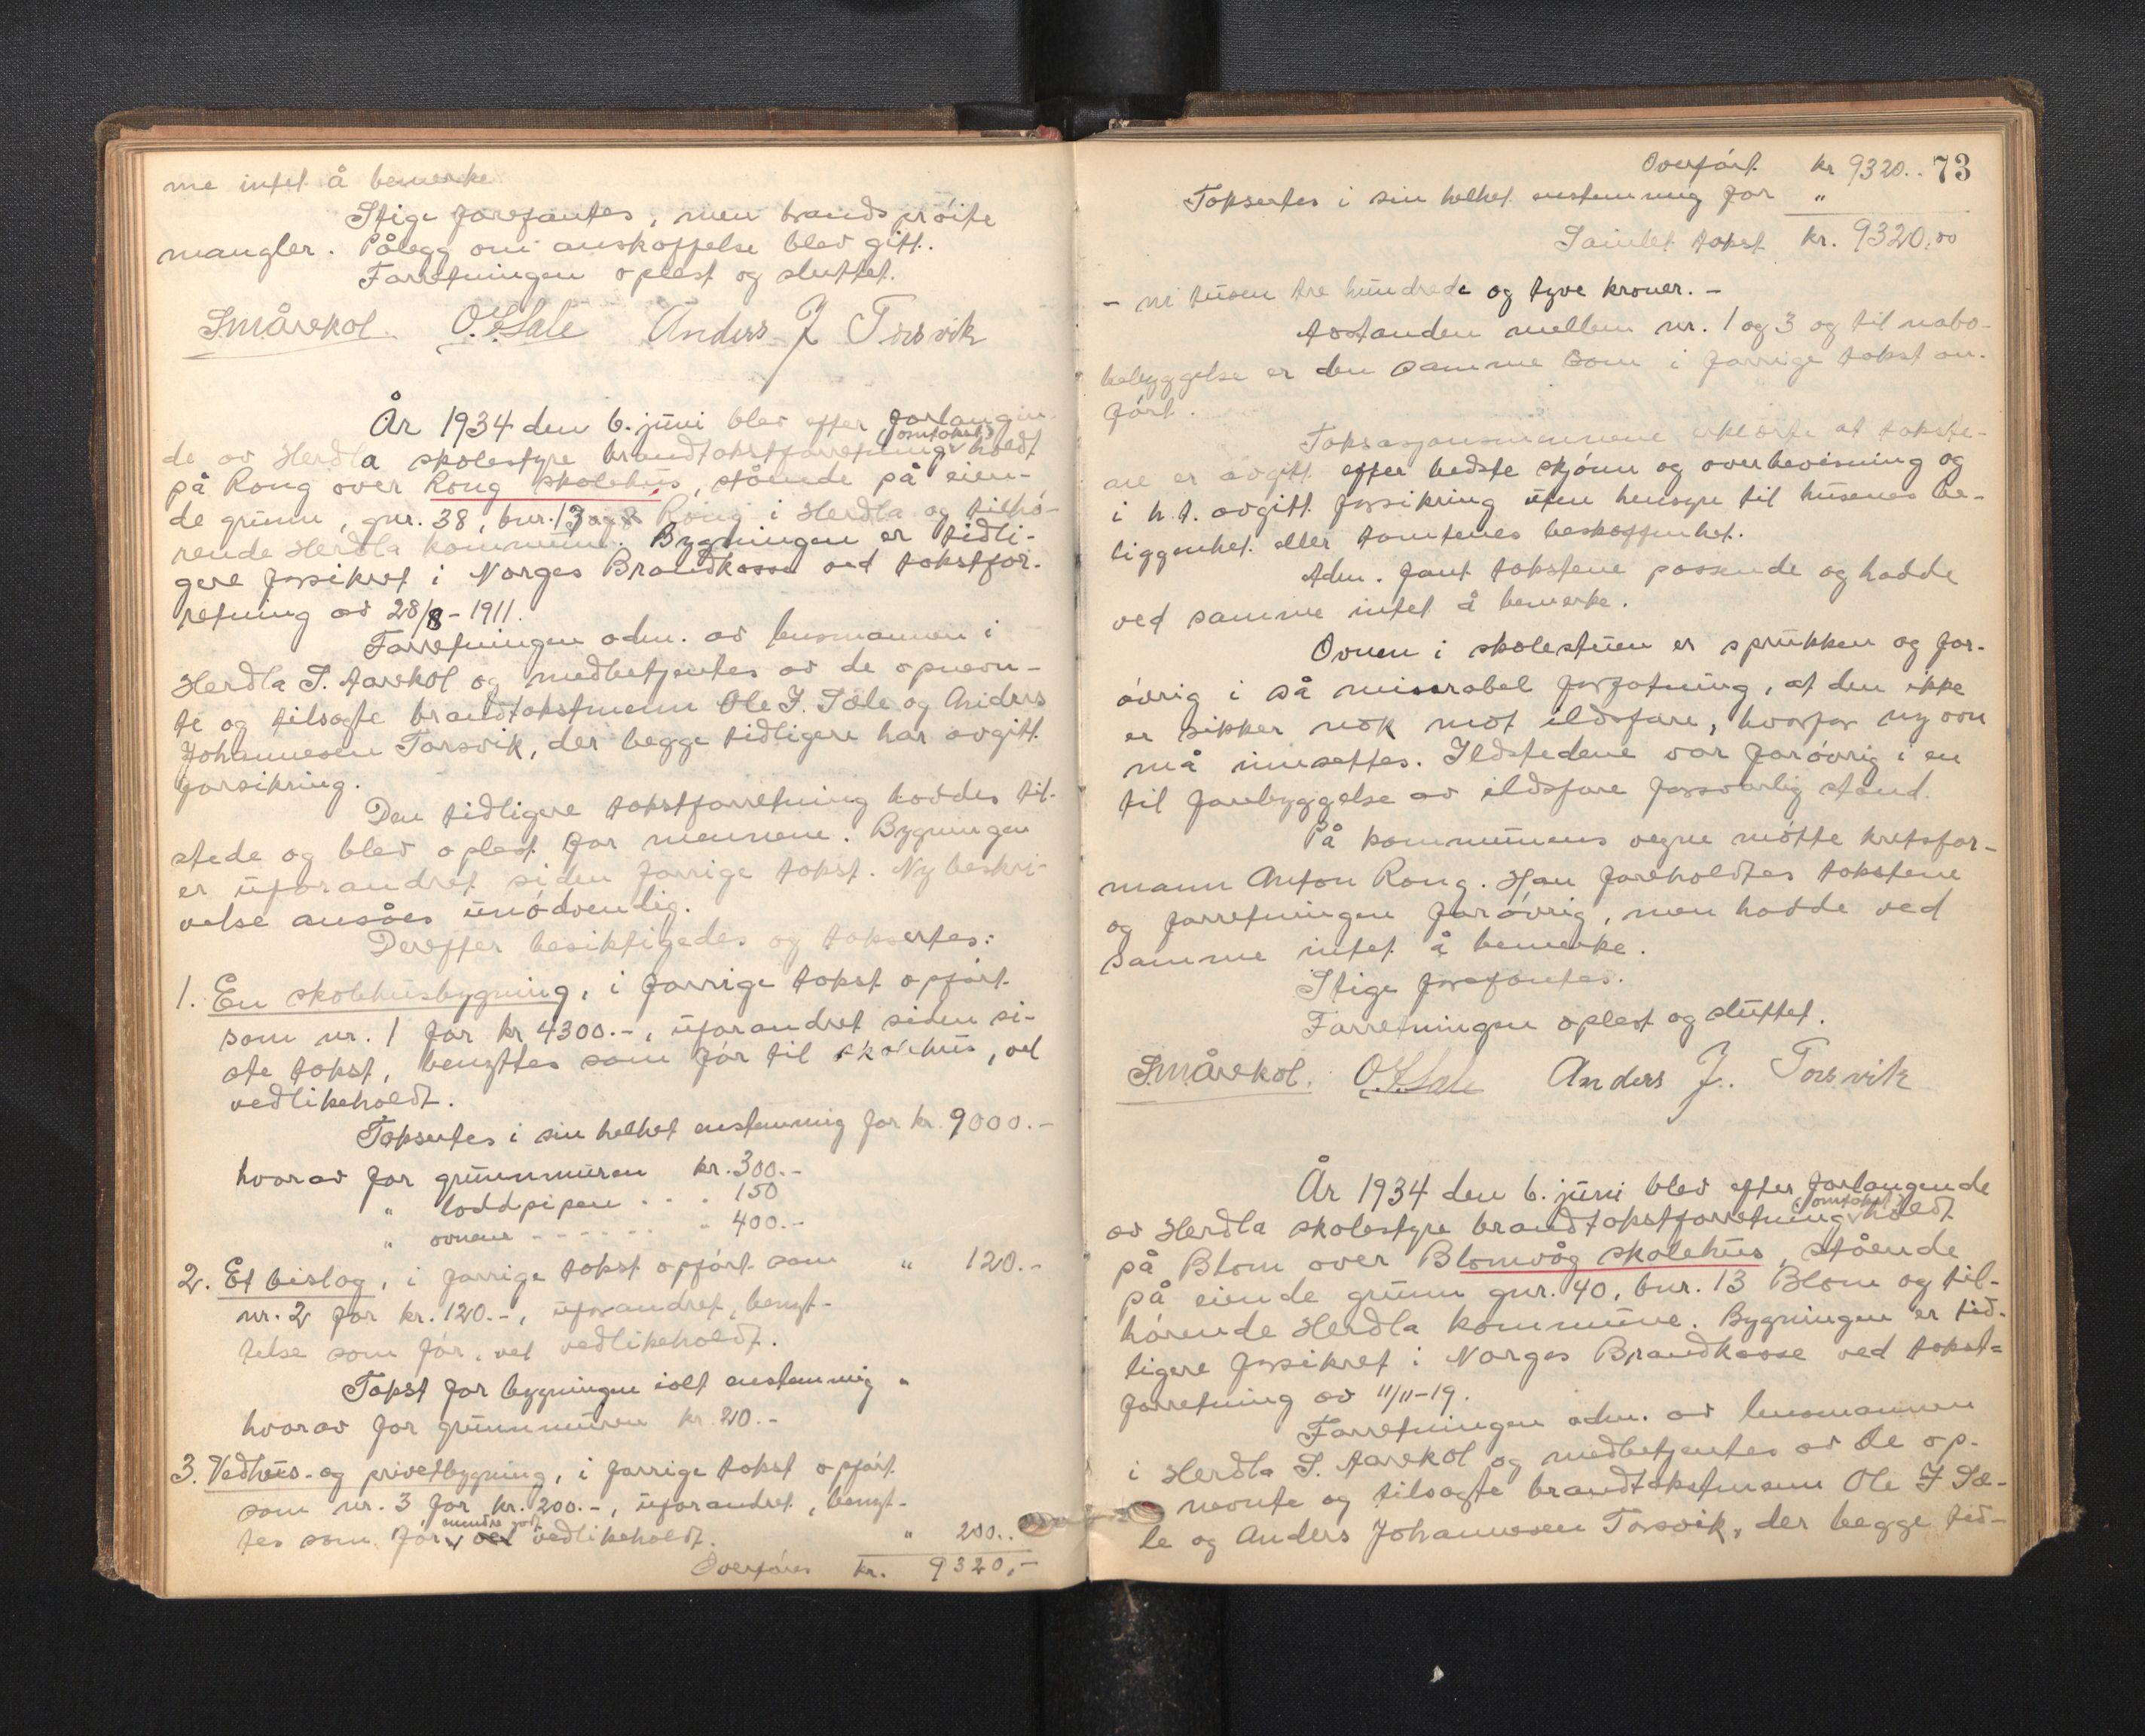 me intet å bemerke.
Stige forefantes, men brandsprøite
mangler. Pålegg om anskaffelse blev gitt.
Forretningen oplest og sluttet.
SMårekol. O.J.Sæle Anders J Torsvik
År 1934 den 6. juni blev efter forlangen-
de av Herdla skolestyre brandtakstforretning (omtakst) holdt
på Rong over Rong skolehus, stående på eien-
de grunn, gnr. 38, bnr. 13 og 8 Rong i Herdla og tilhø-
rende Herdla kommune. Bygningen er tidli-
gere forsikret i Norges Brandkasse ved takstfor-
retning av 28/8-1911.
Forretningen adm. av lensmannen i
Herdla S. Aarekol og medbetjentes av de opnevn-
te og tilsagte brandtakstmenn Ole J. Sæle og Anders
Johannesen Torsvik, der begge tidligere har avgitt
forsikring.
Den tidligere takstforretning havdes til-
stede og blev oplest for mennene. Bygningen
er uforandret siden forrige takst. Ny beskri-
velse ansåes unødvendig.
Derefter besiktigedes og taksertes:
1. En skolehusbygning, i forrige takst opført
som nr. 1 for kr 4300.-, uforandret siden si-
ste takst, benyttes som før til skolehus, vel
vedlikeholdt.
Taksertes i sin helhet enstemmig for kr. 9000.-
hvorav for grunnmuren kr. 300.-
" loddpipen . . . 150
" ovnene - - - - - - " 400.-
2. Et bislag, i forrige takst opført som " 120.-
nr. 2 for kr. 120.-, uforandret, benyt-
telse som før, vel vedlikeholdt.
Takst for bygningen ialt enstemmig "
hvorav for grunnmuren kr. 20.-
3. Vedhus- og privetbygning, i forrige takst opført
som nr. 3 for kr. 200.-, uforandret, benyt-
tes som før, mindre godt vel vedlikeholdt. " 200..
Overføres kr. 9320,-
73
Overført kr 9320..
Taksertes i sin helhet enstemmig for "
Samlet takst kr. 9320,00
- ni tusen tre hundrede og tyve kroner. -
Avstanden mellem nr. 1 og 3 og til nabo-
bebyggelse er den samme som i forrige takst an-
ført.
Taksasjonsmennene erklærte at takste-
ne er avgitt efter bedste skjønn og overbevisning og
i h.t. avgitt forsikring uten hensyn til husenes be-
liggenhet eller tomtenes beskaffenhet.
Adm. fant takstene passende og hadde
ved samme intet å bemerke.
Ovnen i skolestuen er sprukken og for-
øvrig i så miserabel forfatning, at den ikke
er sikker nok mot ildsfare, hvorfor ny ovn
må innsettes. Ildstedene var forøvrig i en
til forebyggelse av ildsfare forsvarlig stand.
På kommunens vegne møtte kretsfor-
mann Anton Rong. Han foreholdtes takstene
og forretningen forøvrig, men hadde ved
samme intet å bemerke.
Stige forefantes.
Forretningen oplest og sluttet.
SMårekol. O.J.Sæle Anders J. Torsvik
År 1934 den 6. juni blev efter forlangende
av Herdla skolestyre brandtakstforretning (omtakst) holdt
på Blom over Blomvåg skolehus, stående
på eiende grunn gnr. 40, bnr. 13 Blom og til-
hørende Herdla kommune. Bygningen er tid-
ligere forsikret i Norges Brandkasse ved takst-
forretning av 11/11-19.
Forretningen adm. av lensmannen
i Herdla S. Aarekol og medbetjentes av de op-
nevnte og tilsagte brandtakstmenn Ole J Sæ-
le og Anders Johannesen Torsvik, der begge tid-